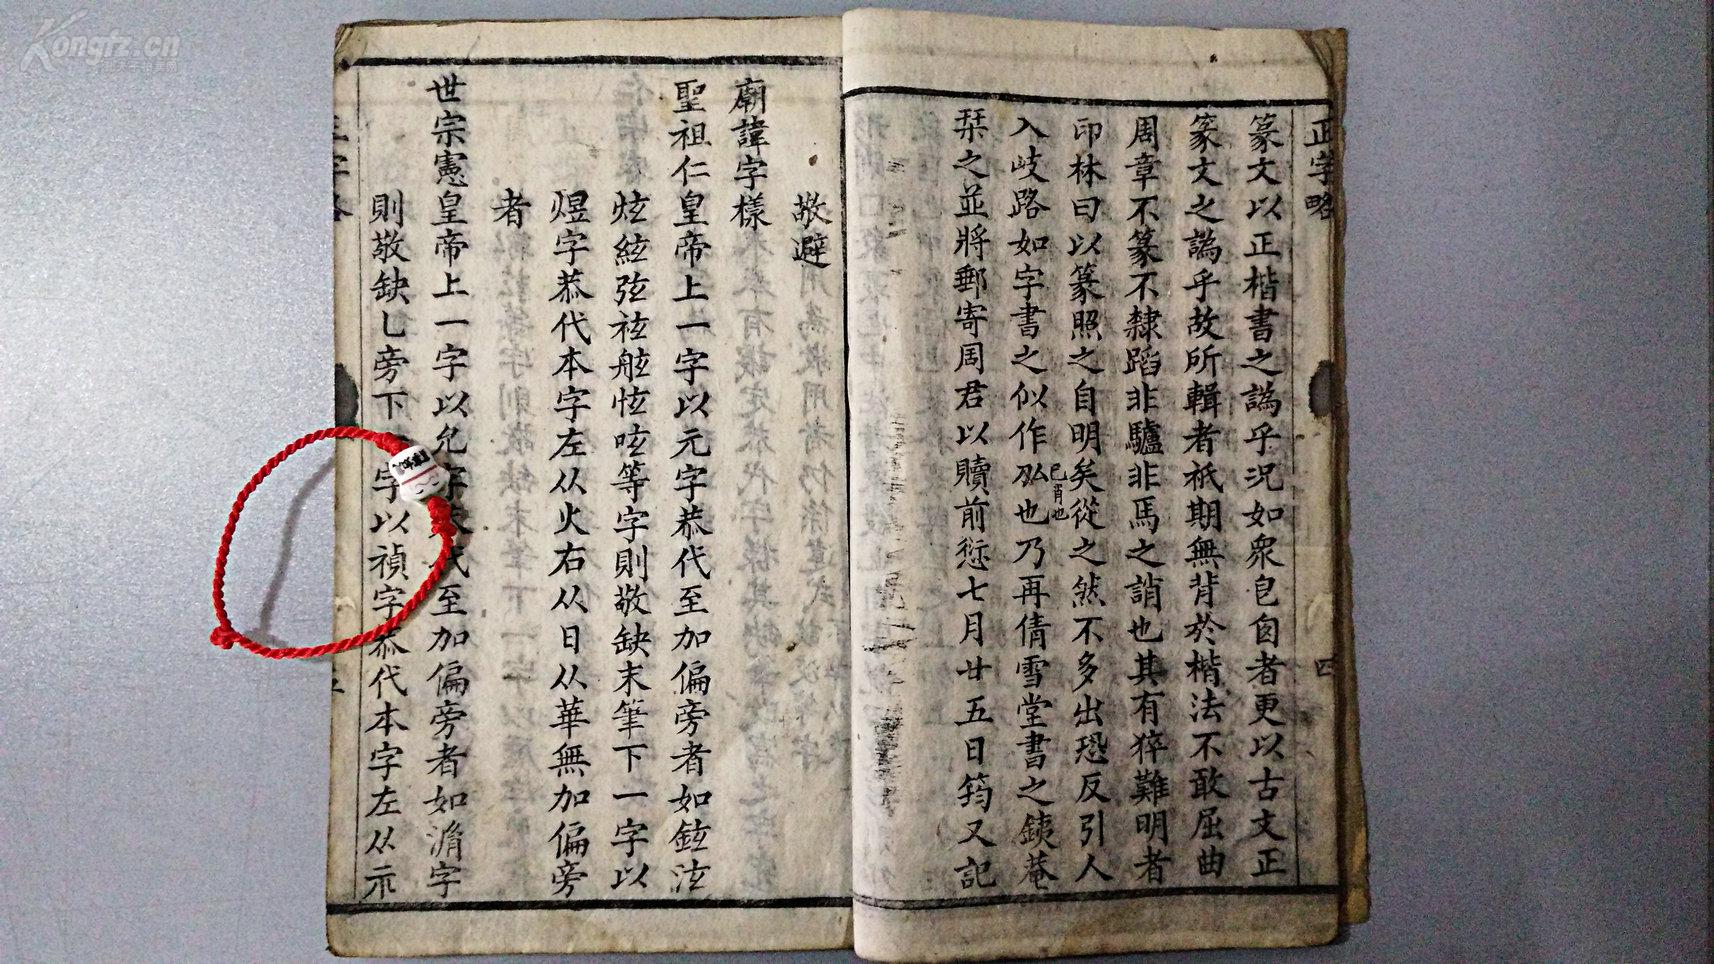 正字略
篆文以正楷書之譌乎況如衆皀皀者更以古文正
篆文之譌乎故所輯者祇期無背於楷法不敢屈曲
周章不篆不隸蹈非驢非馬之誚也其有猝難明者
印林曰以篆照之自明矣從之然不多出恐反引人
入歧路如字書之似作𠨘也
已肎也
乃再倩雪堂書之銕菴
栞之並將郵寄周君以贖前愆七月廿五日筠又記
四
敬避
廟諱字樣
聖祖仁皇帝上一字以元字恭代至加偏旁者如鉉泫
炫絃弦袨舷怰呟等字則敬缺末筆下一字以
煜字恭代本字左从火右从日从華無加偏旁
者
世宗憲皇帝上一字以允字恭代至加偏旁者如淯字
則敬缺乚旁下字以禎字恭代本字左从示
Kongfz.cn